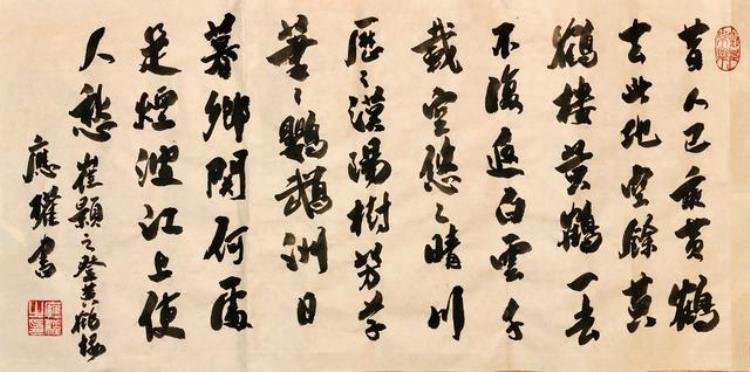 昔人已乘黄鶴
去此地空餘黄
鶴樓黄鶴一去
不復返白雲千
載空悠〻晴川
歷〻漢陽樹芳草
萋〻鸚鵡洲日
暮鄉關何處
是煙波江上使
人愁
崔顥之登黄鶴樓
應書